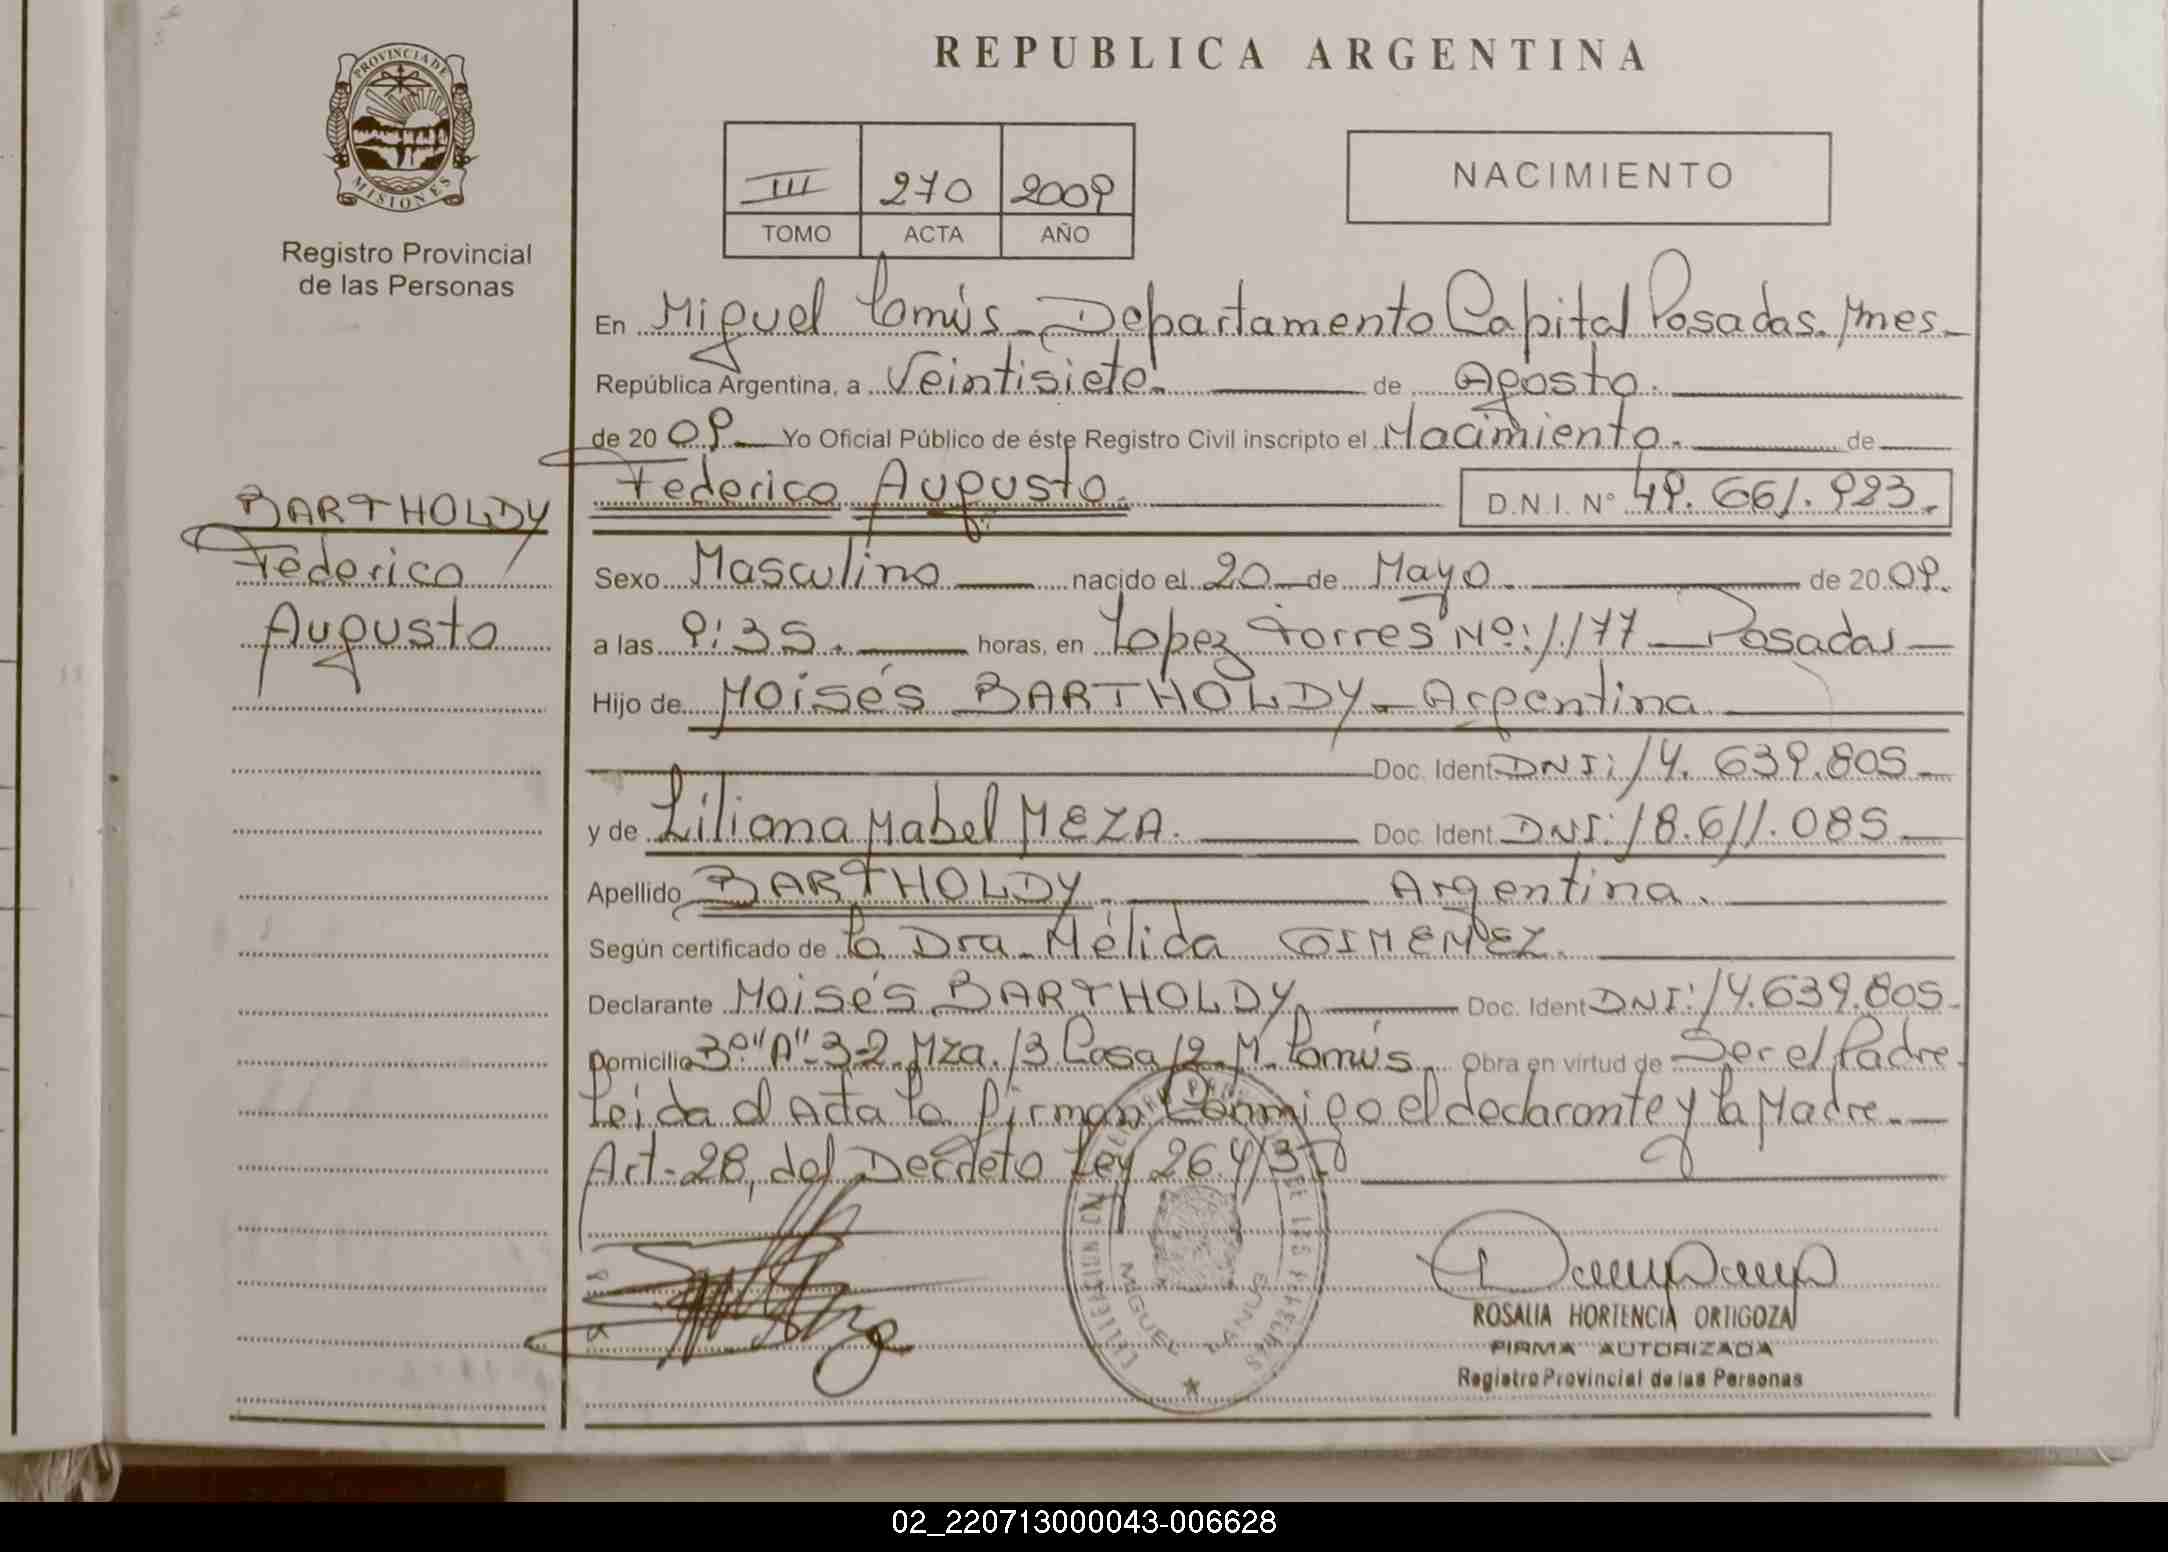 PROVINCIA DE
MISIONES
Registro Provincial
de las Personas
BARTHOLDY
Federico
Augusto
REPUBLICA ARGENTINA
III 270 2009
TOMO ACTA AÑO
NACIMIENTO
En Miguel Lanús - Departamento Capital Posadas. Mnes-
República Argentina, a Veintisiete. de Agosto.
de 20 09 Yo Oficial Público de éste Registro Civil inscripto el Nacimiento. de
Federico Augusto. D.N.I. Nº 49.661.923.
Sexo Masculino nacido el 20 de Mayo de 20 09.
a las 9:35. horas, en Lopez Torres Nº: 1.177 - Posadas -
Hijo de Moisés BARTHOLDY - Argentina
Doc. Ident. DNI: 14.639.805 -
y de Liliana Mabel MEZA. Doc. Ident. DNI: 18.611.085 -
Apellido BARTHOLDY. Argentina.
Según certificado de la Dra. Nélida GIMENEZ.
Declarante Moisés BARTHOLDY. Doc. Ident. DNI: 14.639.805 -
Domicilio 3º "A" - 3-2 - Mza. 13 Casa 12 - M. Lanús. Obra en virtud de Ser el Padre.
Leida el Acta la firman Conmigo el declarante y la Madre. -
Art. 28, del Decreto Ley 264/37
MIGUEL LANUS
ROSALIA HORTENCIA ORTIGOZA
FIRMA AUTORIZADA
Registro Provincial de las Personas
02_220713000043-006628